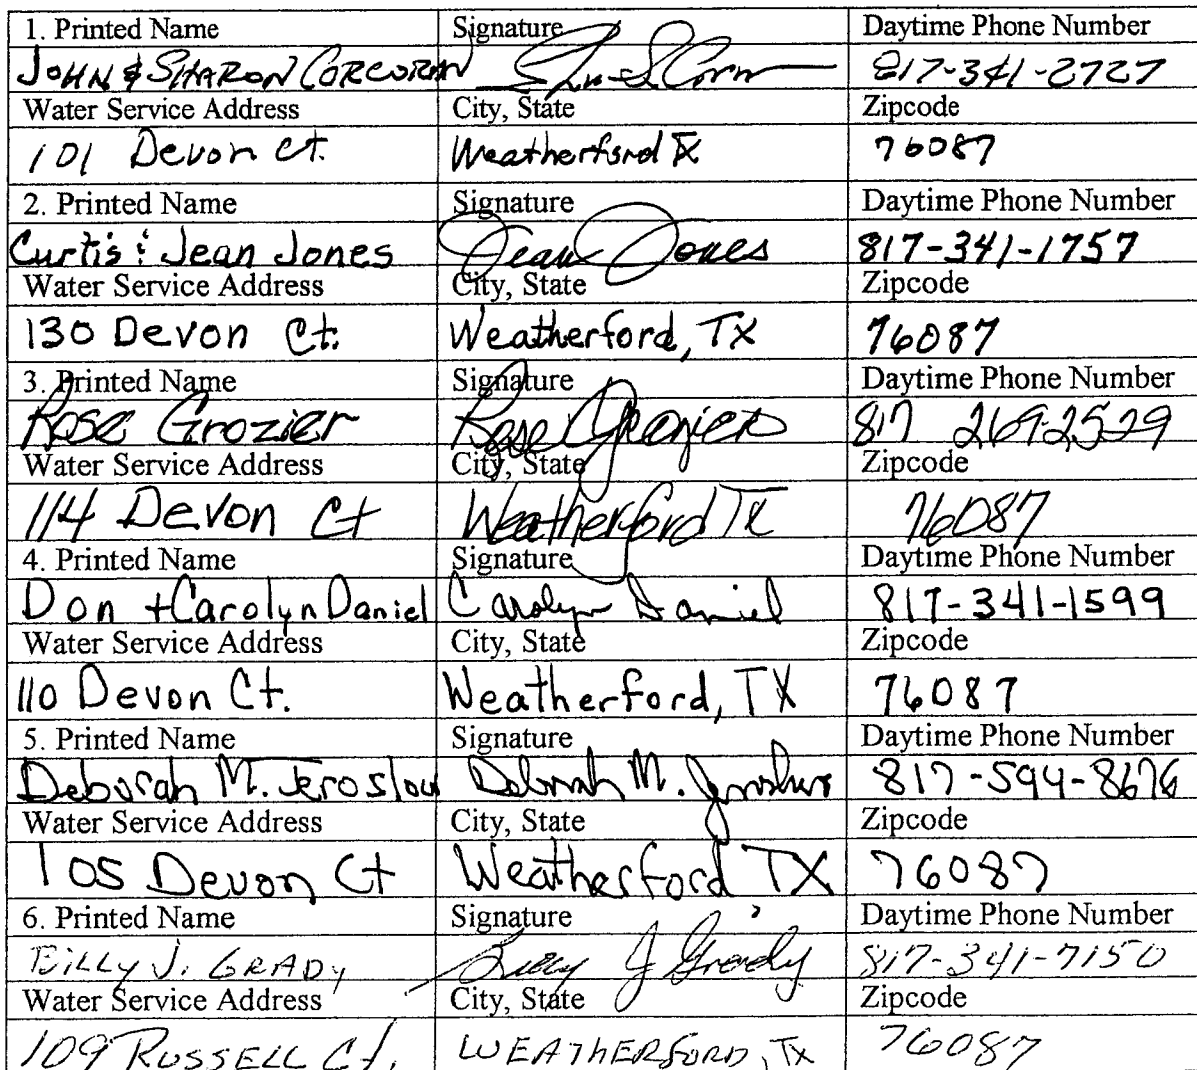 1. Printed Name Signature Daytime Phone Number
JOHN & SHARON CORCORAN 817-341-2727
Water Service Address City, State Zipcode
101 Devon ct. Weatherford TX 76087
2. Printed Name Signature Daytime Phone Number
Curtis & Jean Jones Jean Jones 817-341-1757
Water Service Address City, State Zipcode
130 Devon Ct. Weatherford, TX 76087
3. Printed Name Signature Daytime Phone Number
Rose Grozier Rose Grozier 817 269-2529
Water Service Address City, State Zipcode
114 Devon Ct Weatherford TX 76087
4. Printed Name Signature Daytime Phone Number
Don + Carolyn Daniel Carolyn Daniel 817-341-1599
Water Service Address City, State Zipcode
110 Devon Ct. Weatherford, TX 76087
5. Printed Name Signature Daytime Phone Number
Deborah M. Jeroslow Deborah M. Jeroslow 817-594-8676
Water Service Address City, State Zipcode
105 Devon Ct Weatherford TX 76087
6. Printed Name Signature Daytime Phone Number
BILLY J. GRADY Billy J Grady 817-341-7150
Water Service Address City, State Zipcode
109 RUSSELL Ct. WEATHERFORD, TX 76087